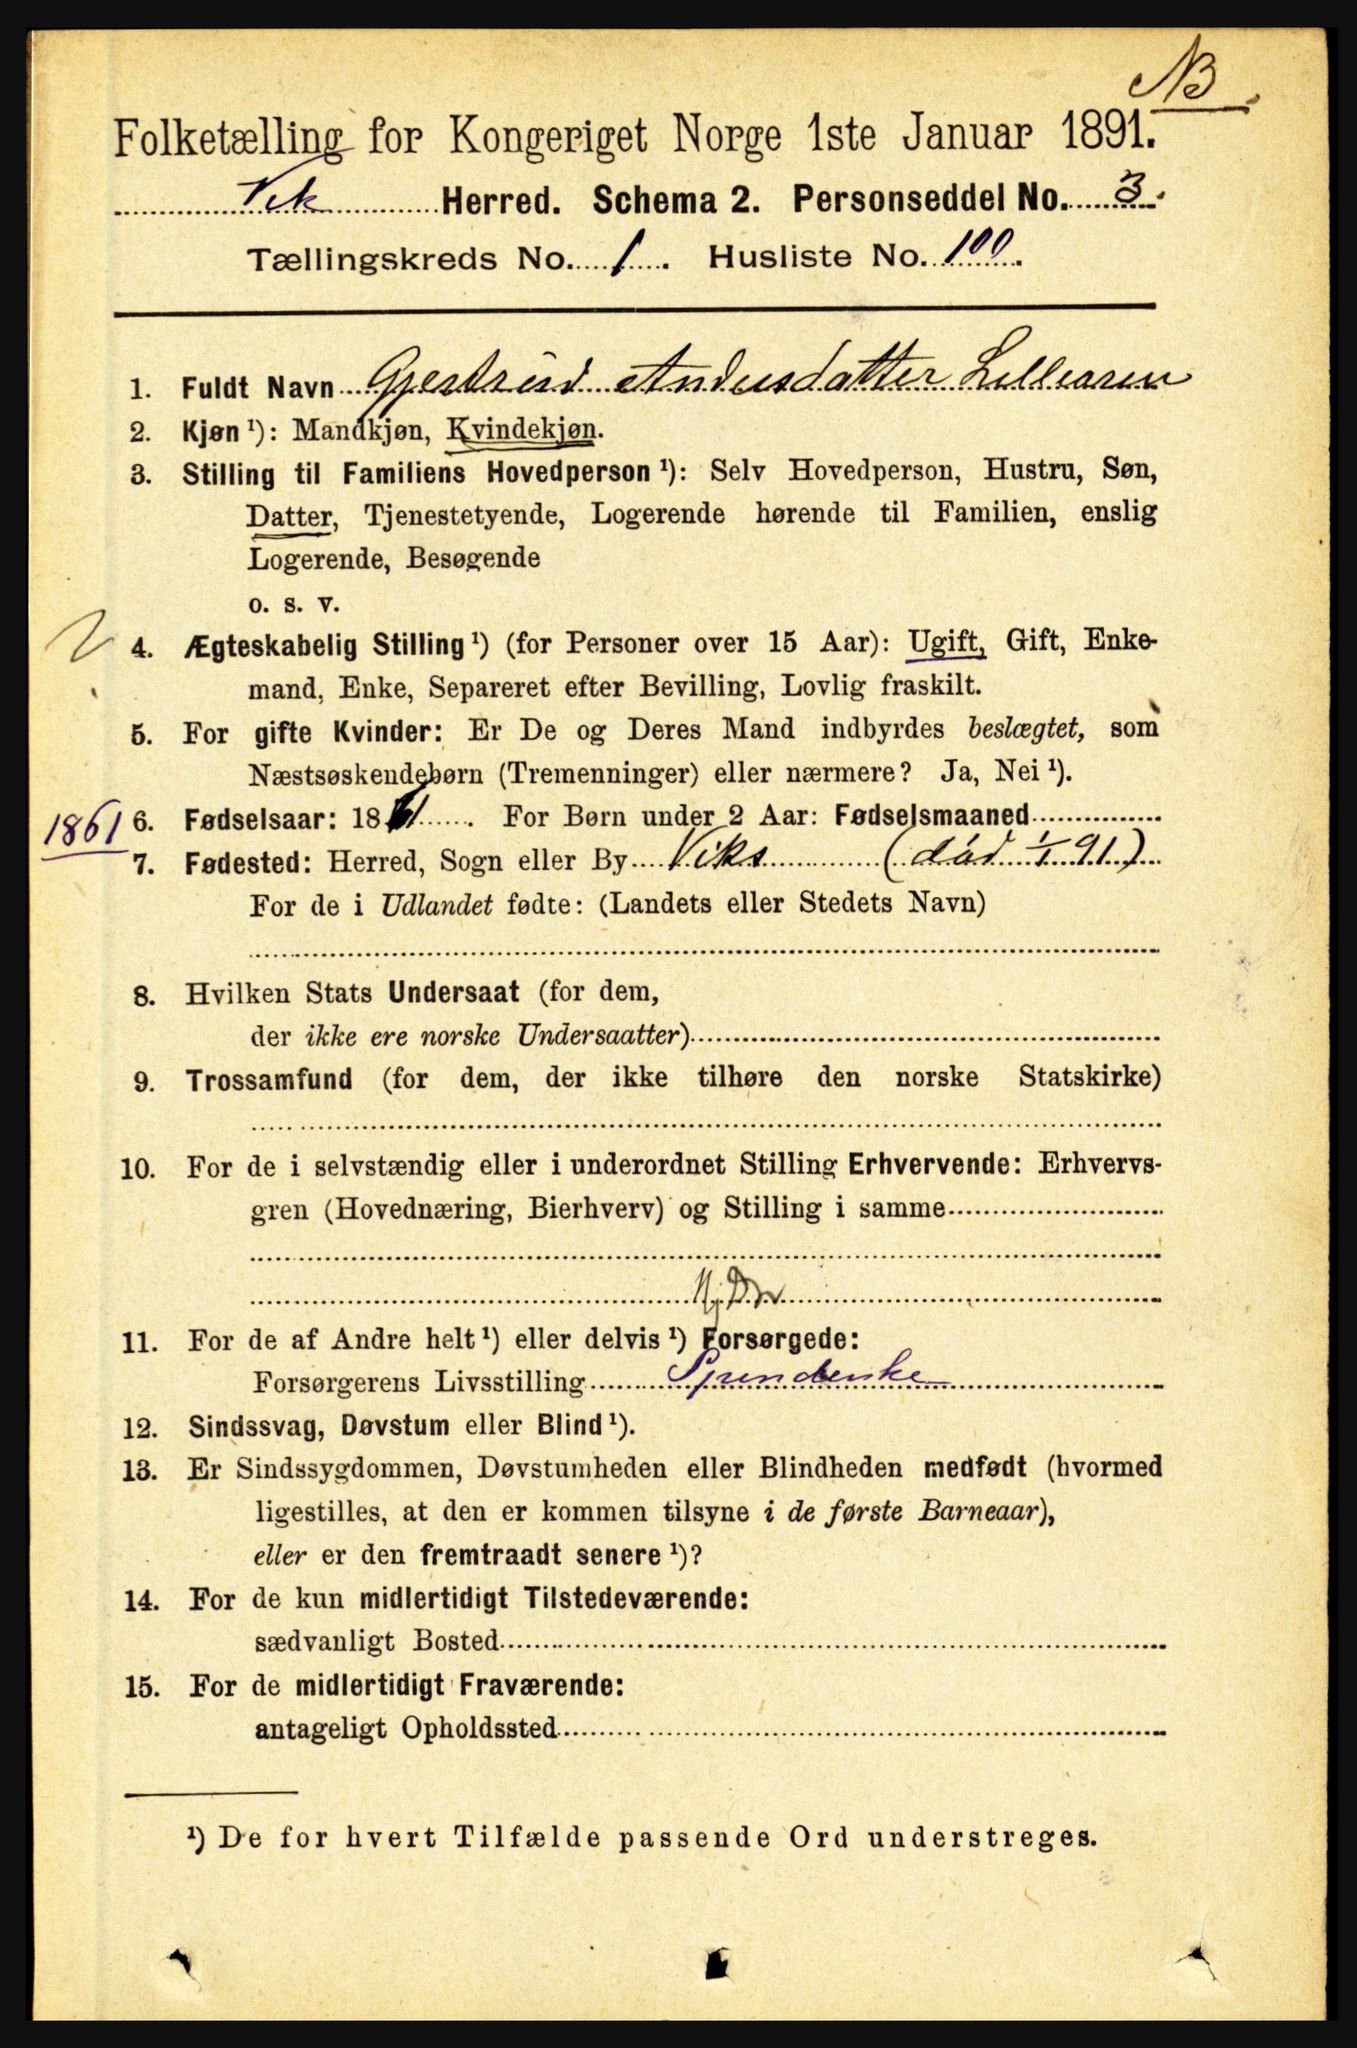 NB.
Folketælling for Kongeriget Norge 1ste Januar 1891.
Vik Herred. Schema 2. Personseddel No. 3.
Tællingskreds No. 1. Husliste No. 100.
1. Fuldt Navn Gjertrud Andersdatter
2. Kjøn ¹): Mandkjøn, Kvindekjøn.
3. Stilling til Familiens Hovedperson ¹): Selv Hovedperson, Hustru, Søn,
Datter, Tjenestetyende, Logerende hørende til Familien, enslig
Logerende, Besøgende
o. s. v.
4. Ægteskabelig Stilling ¹) (for Personer over 15 Aar): Ugift, Gift, Enke-
mand, Enke, Separeret efter Bevilling, Lovlig fraskilt.
5. For gifte Kvinder: Er De og Deres Mand indbyrdes beslægtet, som
Næstsøskendebørn (Tremenninger) eller nærmere? Ja, Nei ¹).
1861 6. Fødselsaar: 1861. For Børn under 2 Aar: Fødselsmaaned
7. Fødested: Herred, Sogn eller By Viks (død 1/1 91)
For de i Udlandet fødte: (Landets eller Stedets Navn)
8. Hvilken Stats Undersaat (for dem,
der ikke ere norske Undersaatter)
9. Trossamfund (for dem, der ikke tilhøre den norske Statskirke)
10. For de i selvstændig eller i underordnet Stilling Erhvervende: Erhvervs-
gren (Hovednæring, Bierhverv) og Stilling i samme
11. For de af Andre helt ¹) eller delvis ¹) Forsørgede:
Forsørgerens Livsstilling
12. Sindssvag, Døvstum eller Blind ¹).
13. Er Sindssygdommen, Døvstumheden eller Blindheden medfødt (hvormed
ligestilles, at den er kommen tilsyne i de første Barneaar),
eller er den fremtraadt senere ¹)?
14. For de kun midlertidigt Tilstedeværende:
sædvanligt Bosted
15. For de midlertidigt Fraværende:
antageligt Opholdssted
¹) De for hvert Tilfælde passende Ord understreges.